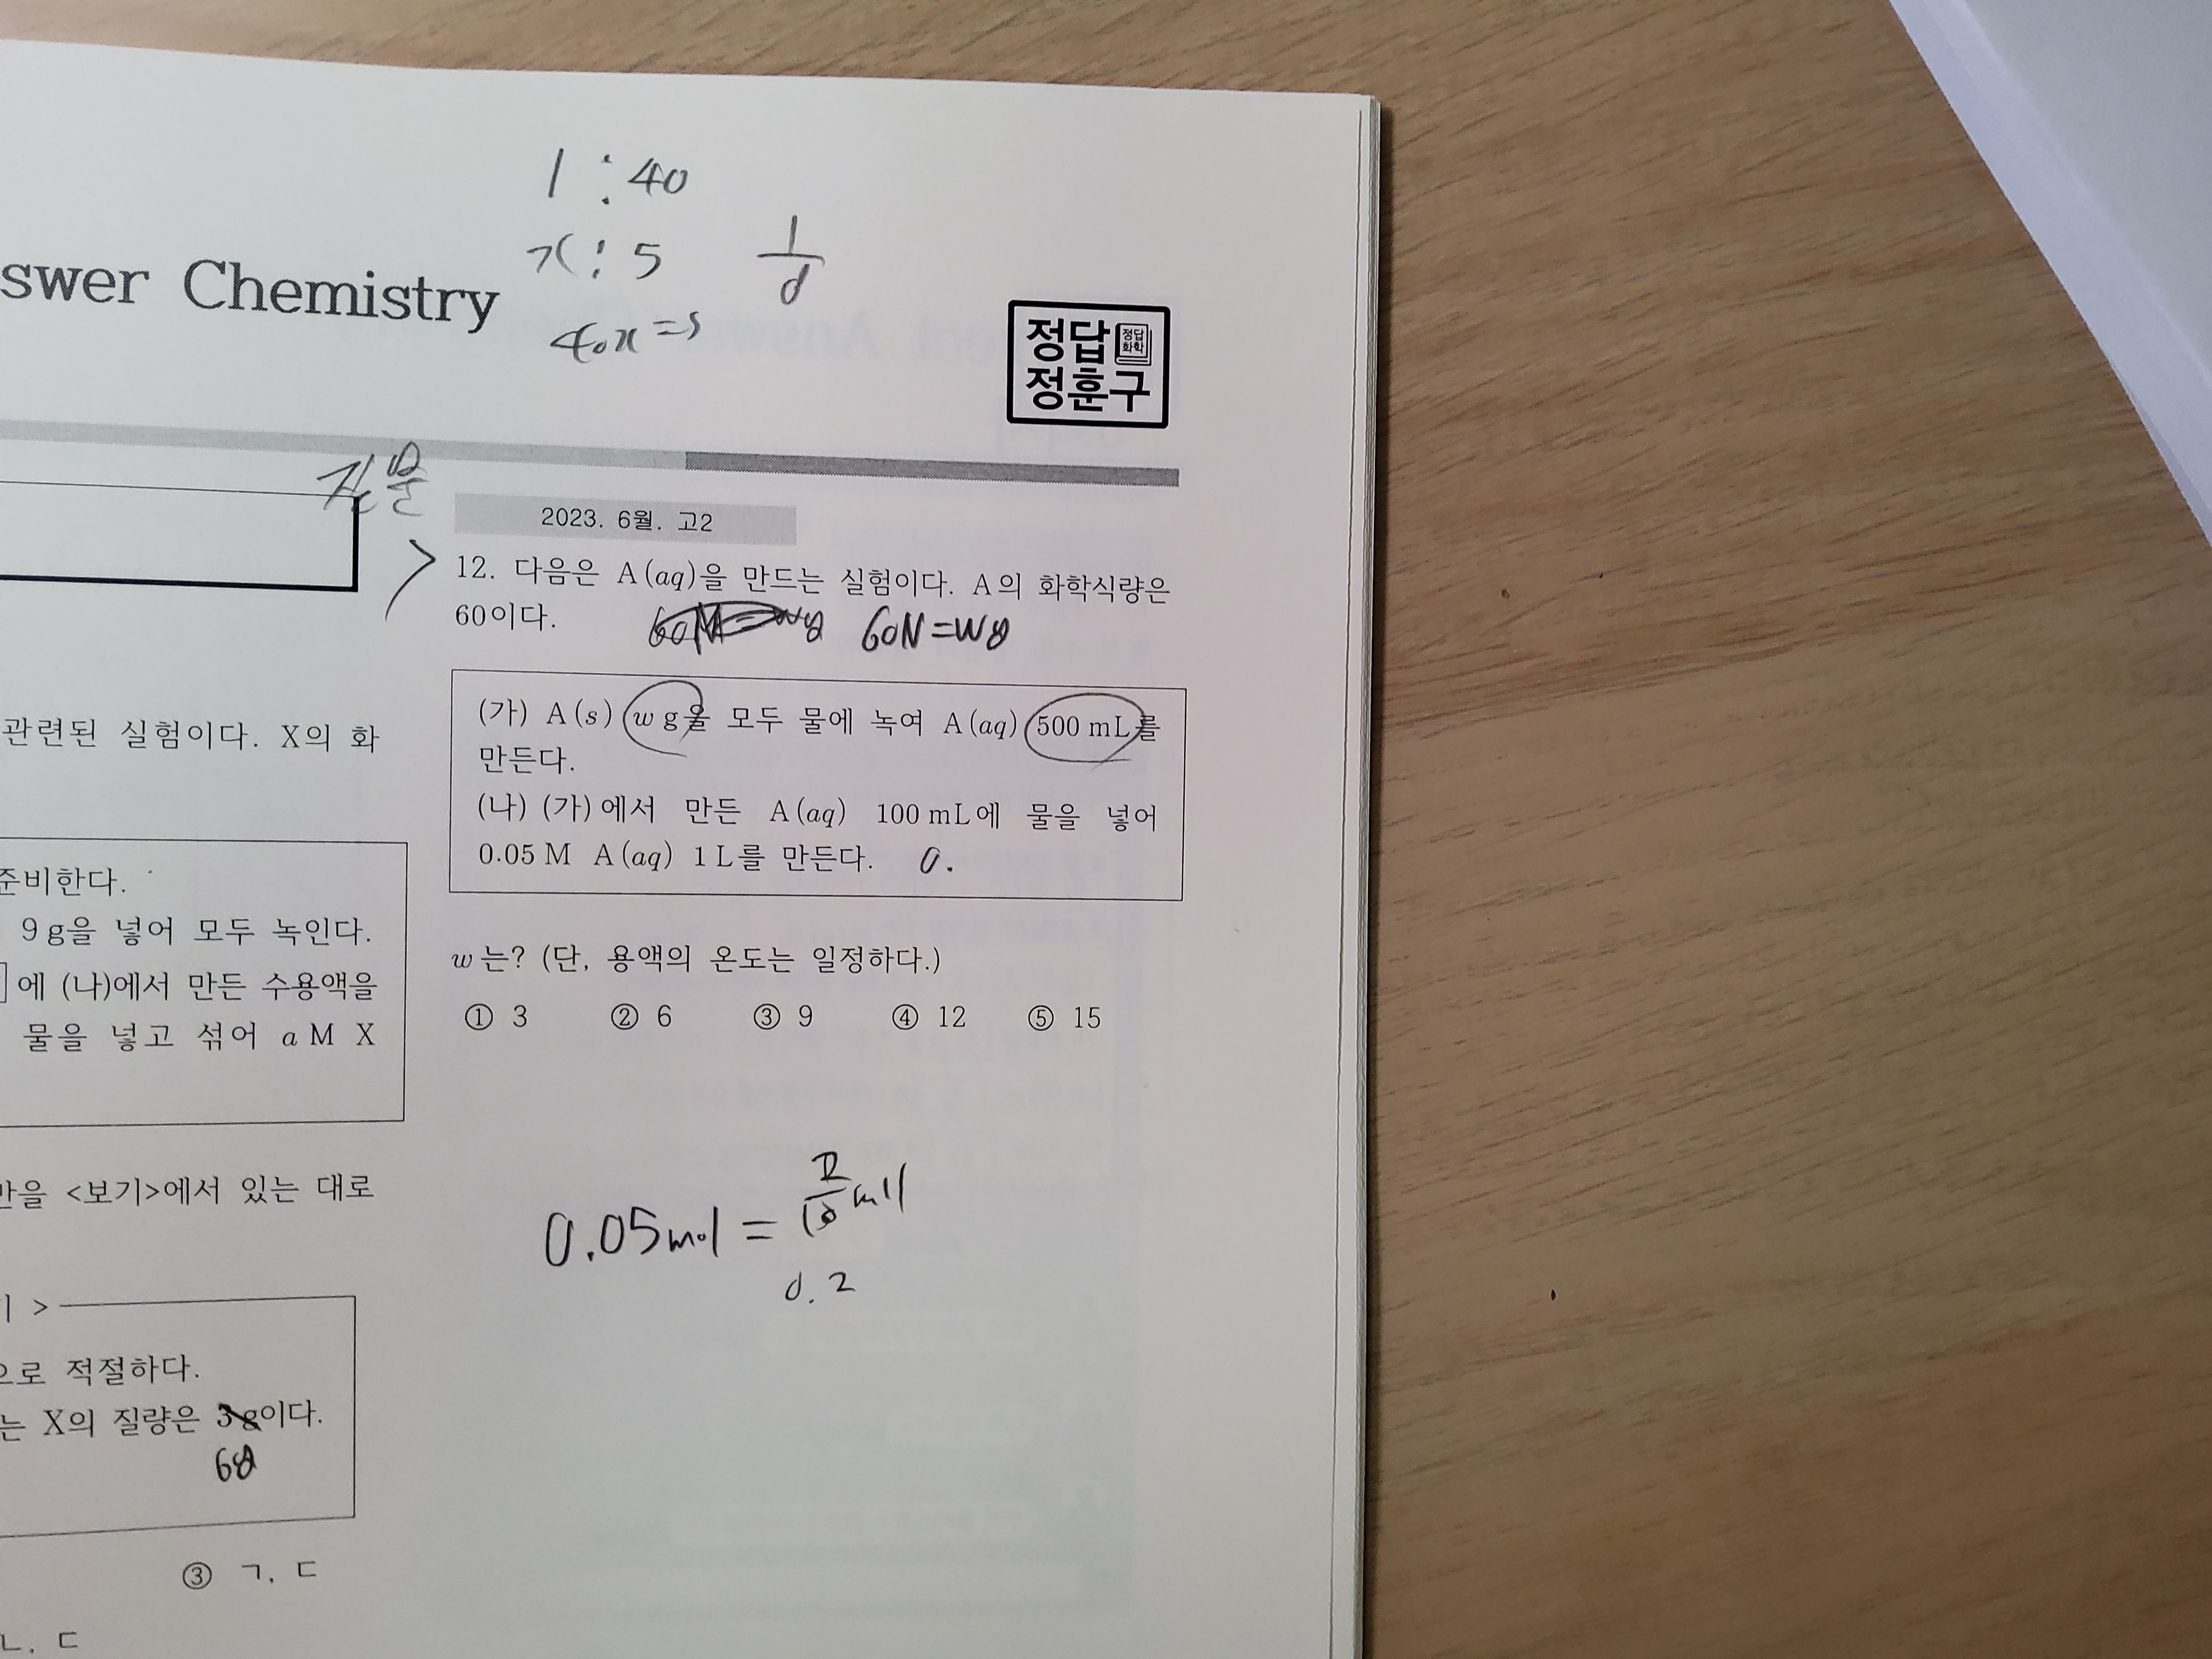 1 : 40
x : 5
40x = 5
swer Chemistry
정답
정답
화학
정훈구
질문
관련된 실험이다. X의 화
준비한다.
9 g을 넣어 모두 녹인다.
에 (나)에서 만든 수용액을
물을 넣고 섞어 a M X
만을 <보기>에서 있는 대로
기 >
으로 적절하다.
는 X의 질량은 3 g이다.
6g
③ ㄱ, ㄷ
ㄴ, ㄷ
2023. 6월. 고2
12. 다음은 A(aq)을 만드는 실험이다. A의 화학식량은
60이다. 60N=wg
(가) A(s) w g을 모두 물에 녹여 A(aq) 500 mL를
만든다.
(나) (가)에서 만든 A(aq) 100 mL에 물을 넣어
0.05 M A(aq) 1 L를 만든다. 0.
w는? (단, 용액의 온도는 일정하다.)
① 3 ② 6 ③ 9 ④ 12 ⑤ 15
0.05mol =
0.2